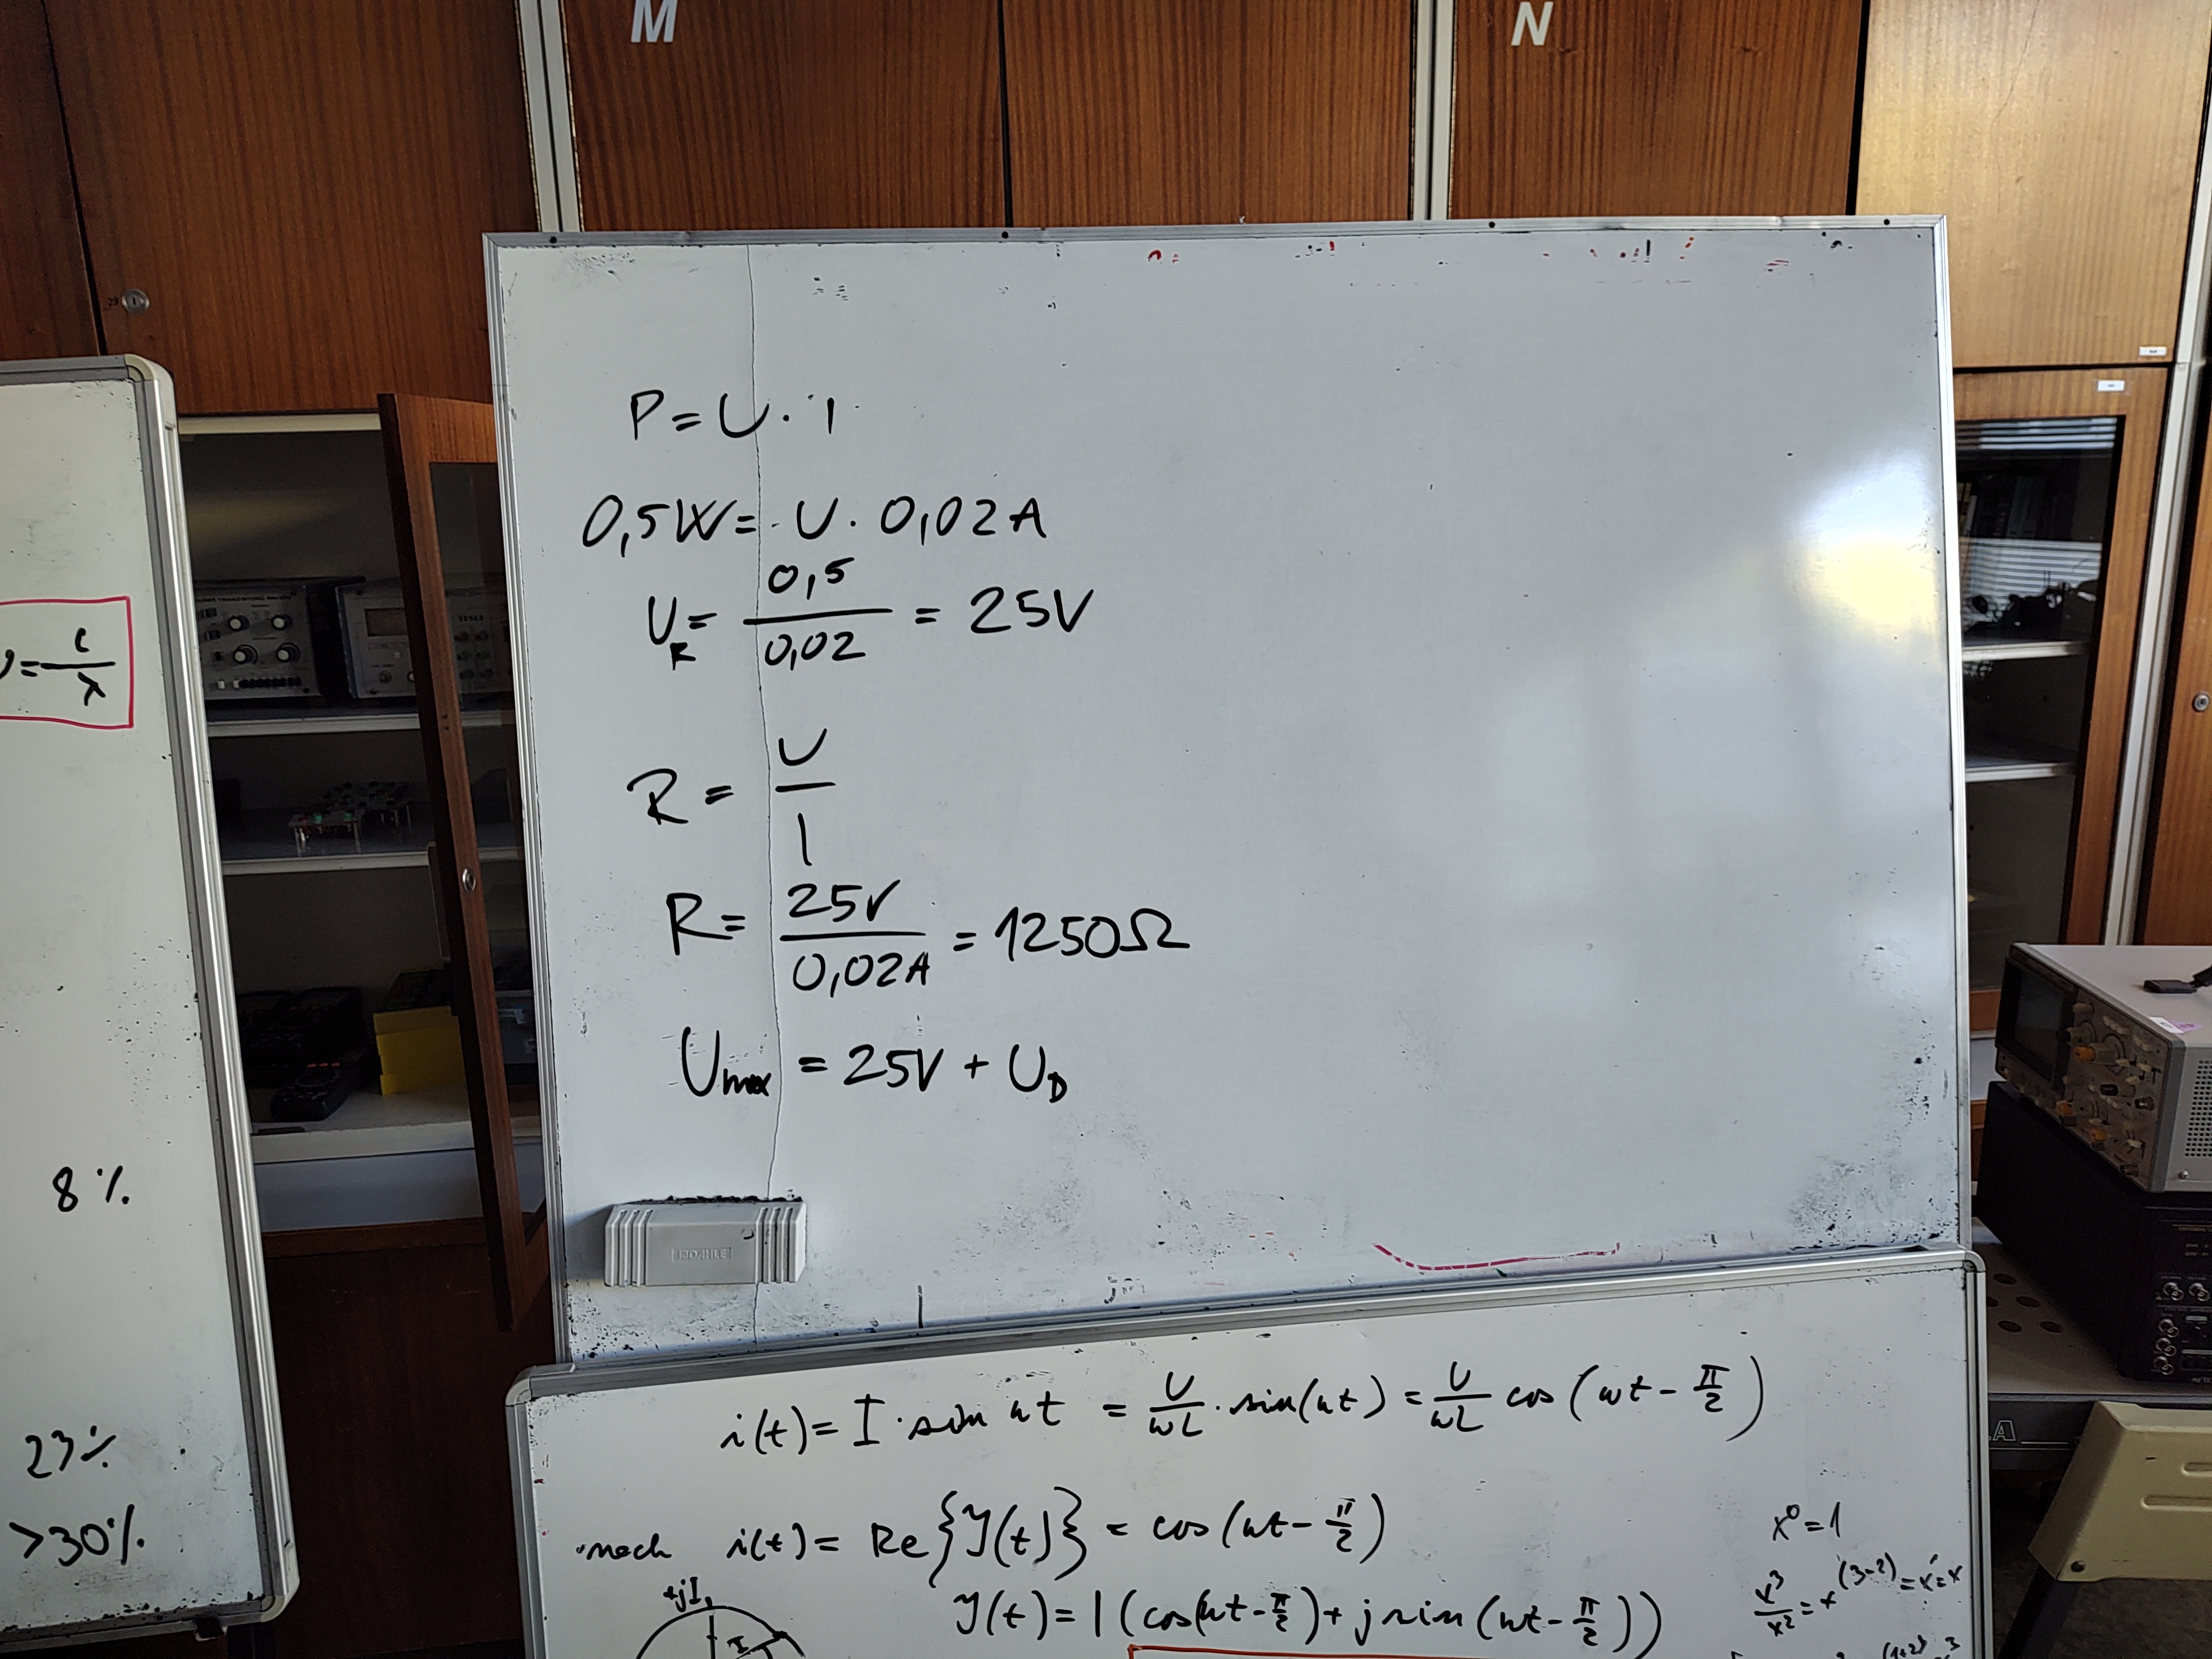 M
N
P = U · I
0,5W = U · 0,02A
U_R = 0,5 / 0,02 = 25V
R = U / I
R = 25V / 0,02A = 1250Ω
U_max = 25V + U_D
DAHLE
ν = c / λ
8 %
23%
>30%
i(t) = I · sin ωt = U/ωL · sin(ωt) = U/ωL cos (ωt - π/2)
nach i(t) = Re{I(t)} = cos (ωt - π/2)
I(t) = I (cos(ωt - π/2) + j sin (ωt - π/2))
x⁰ = 1
x³/x² = x^(3-2) = x¹ = x
+jI
I
TESLA